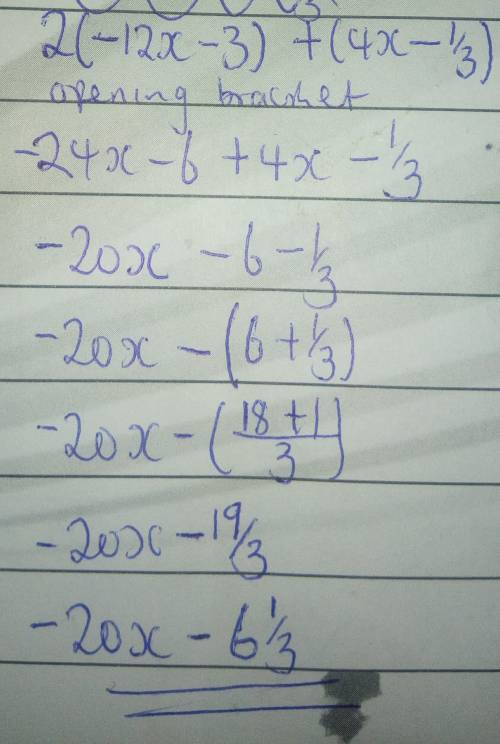 2(-12x-3) +(4x-1/3)
opening bracket
-24x-6+4x-1/3
-20x -6-1/3
-20x-(6+1/3)
-20x-(18+1/3)
-20x-19/3
-20x-6 1/3